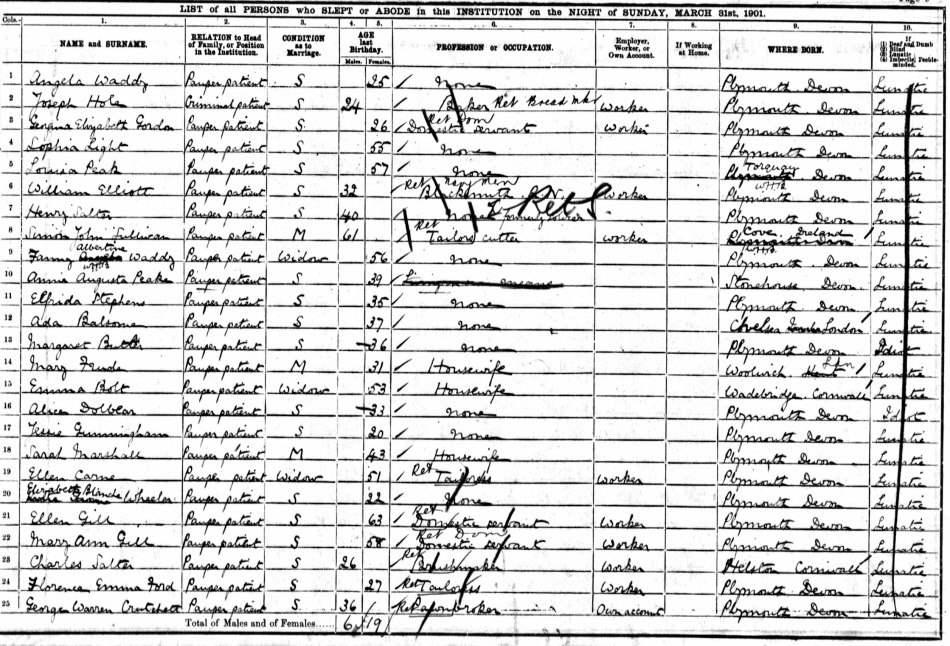 LIST of all PERSONS who SLEPT or ABODE in this INSTITUTION on the NIGHT of SUNDAY, MARCH 31st, 1901.
Cols.— 1. 2. 3. 4. 5. 6. 7. 8. 9. 10.
NAME and SURNAME. RELATION to Head of Family, or Position in the Institution. CONDITION as to Marriage. AGE last Birthday. Males. Females. PROFESSION or OCCUPATION. Employer, Worker, or Own Account. If Working at Home. WHERE BORN. If (1) Deaf and Dumb (2) Blind (3) Lunatic (4) Imbecile, Feeble-minded.
1 Angela Waddy Pauper patient S 25 None Plymouth Devon Lunatic
2 Joseph Hole Criminal patient S 24 Baker Ret Bread Worker Plymouth Devon Lunatic
3 Georgina Elizabeth Gordon Pauper patient S 26 Ret Dom Domestic servant Worker Plymouth Devon Lunatic
4 Sophia Light Pauper patient S 55 None Plymouth Devon Lunatic
5 Louisa Peak Pauper patient S 57 None Torquay Devon Lunatic
6 William Elliott Pauper patient S 32 Ret Blacksmith Worker Plymouth Devon Lunatic
7 Henry Salter Pauper patient S 40 None formerly Plymouth Devon Lunatic
8 Simon John Sullivan Pauper patient M 61 Ret Tailors cutter Worker Cove, Ireland Lunatic
9 Fanny Albertine Waddy Pauper patient Widow 56 None Plymouth Devon Lunatic
10 Annie Augusta Peake Pauper patient S 39 Living on own means Stonehouse Devon Lunatic
11 Elfrida Stephens Pauper patient S 35 None Plymouth Devon Lunatic
12 Ada Balsome Pauper patient S 37 None Chelsea London Lunatic
13 Margaret Pauper patient S 36 None Plymouth Devon Idiot
14 Mary Frude Pauper patient M 31 Housewife Woolwich Kent Ldn Lunatic
15 Emma Bolt Pauper patient Widow 53 Housewife Wadebridge Cornwall Lunatic
16 Alice Dolbear Pauper patient S 33 None Plymouth Devon Idiot
17 Jessie Gunningham Pauper patient S 20 None Plymouth Devon Lunatic
18 Sarah Marshall Pauper patient M 43 Housewife Plymouth Devon Lunatic
19 Ellen Carne Pauper patient Widow 51 Ret Tailoress Worker Plymouth Devon Lunatic
20 Elizabeth Blanche Wheeler Pauper patient S 22 None Plymouth Devon Lunatic
21 Ellen Gill Pauper patient S 63 Ret Domestic servant Worker Plymouth Devon Lunatic
22 Mary Ann Gill Pauper patient S 58 Ret Dom Domestic servant Worker Plymouth Devon Lunatic
23 Charles Salter Pauper patient S 26 Ret Brushmaker Worker Helston Cornwall Lunatic
24 Florence Emma Ford Pauper patient S 27 Ret Tailoress Worker Plymouth Devon Lunatic
25 George Warren Crutchett Pauper patient S 36 Ret Pawnbroker Own account Plymouth Devon Lunatic
Total of Males and of Females...... 6 19